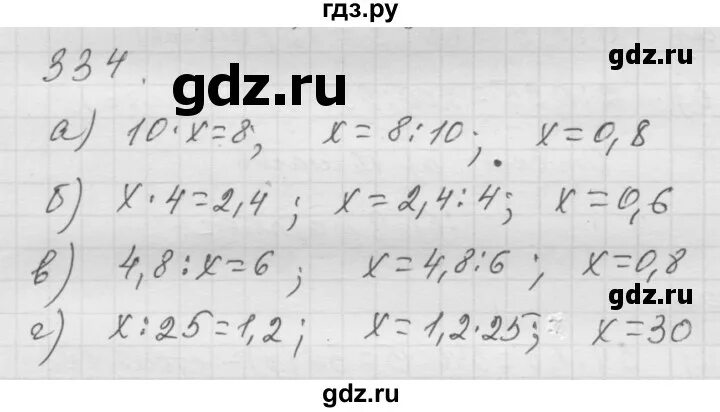 гдз.ру
334.
gdz.ru
а) 10·x=8; x=8:10; x=0,8
б) x·4=2,4; x=2,4:4; x=0,6
в) 4,8:x=6; x=4,8:6; x=0,8
gdz.ru
г) x:25=1,2; x=1,2·25; x=30
gdz.ru